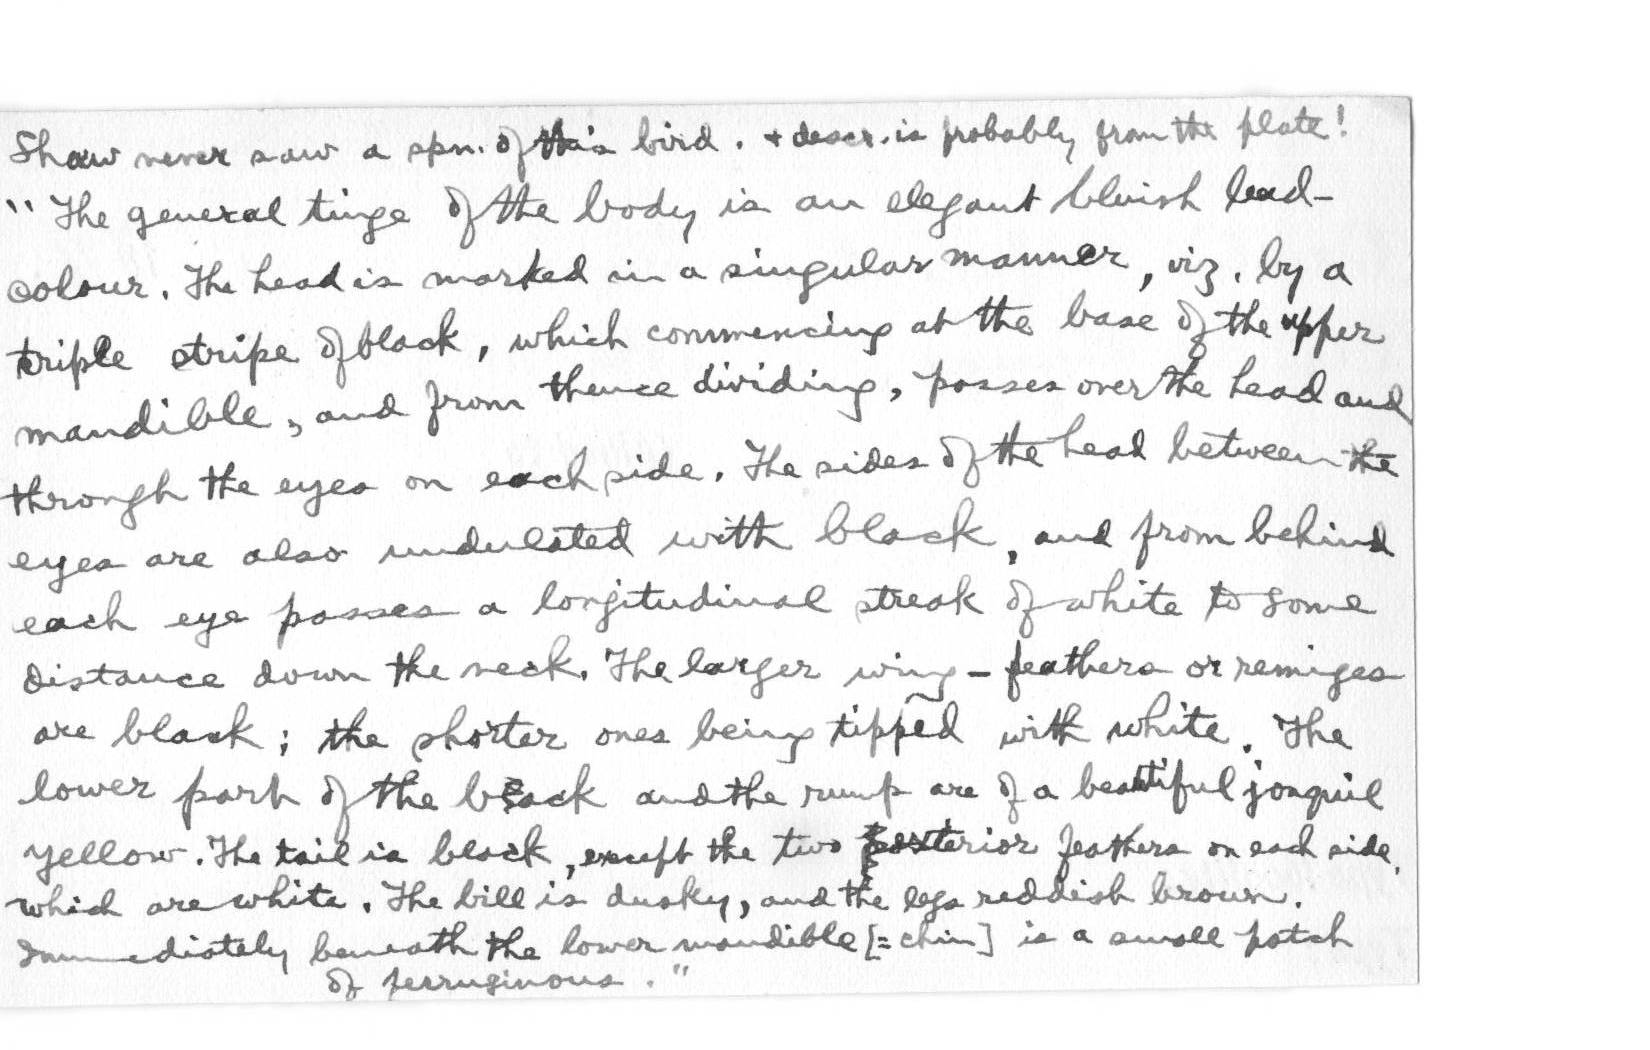 Shaw never saw a spn. of this bird. + descr. is probably from the plate!
"The general tinge of the body is an elegant bluish lead-
colour. The head is marked in a singular manner, viz. by a
triple stripe of black, which commencing at the base of the upper
mandible, and from thence dividing, passes over the head and
through the eyes on each side. The sides of the head between the
eyes are also undulated with black, and from behind
each eye passes a longitudinal streak of white to some
distance down the neck. The larger wing-feathers or remiges
are black; the shorter ones being tipped with white. The
lower part of the back and the rump are of a beautiful jonquil
yellow. The tail is black, except the two exterior feathers on each side,
which are white. The bill is dusky, and the legs reddish brown.
Immediately beneath the lower mandible [= chin] is a small patch
of ferruginous."